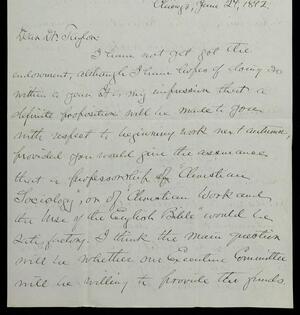 Chicago, June 29, 1892.
Dear Dr. Taylor:
I have not yet got the
endowment, although I have hopes of doing so
within a year. It is my impression that a
definite proposition will be made to you
with respect to beginning work next autumn,
provided you would give the assurance
that a professorship of "Christian
Sociology", or of "Christian Work and
the Use of the English Bible" would be
satisfactory. I think the main question
will be whether our Executive Committee
will be willing to provide the funds